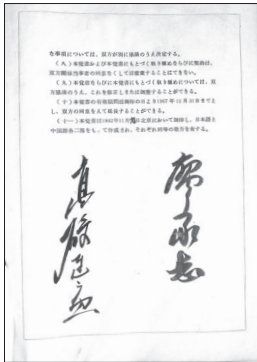 な事項については、双方が別に協議のうえ決定する。
(九)本覚書および本覚書にもとづく取り極めならびに契約は、
双方関係当事者の同意なくしては廃棄することはできない。
(八)本覚書ならびに本覚書にもとづく取り極めについては、双
方協議のうえ、これを修正しまたは調整することができる。
(十)本覚書の有効期間は調印の日より1967年12月31日までと
し、双方の同意をえて延長することができる。
(十一)本覚書は1962年11月9日北京において調印し、日本語と
中国語各二部をもって作成され、それぞれ同等の効力を有する。
廖承志
高碕達之助